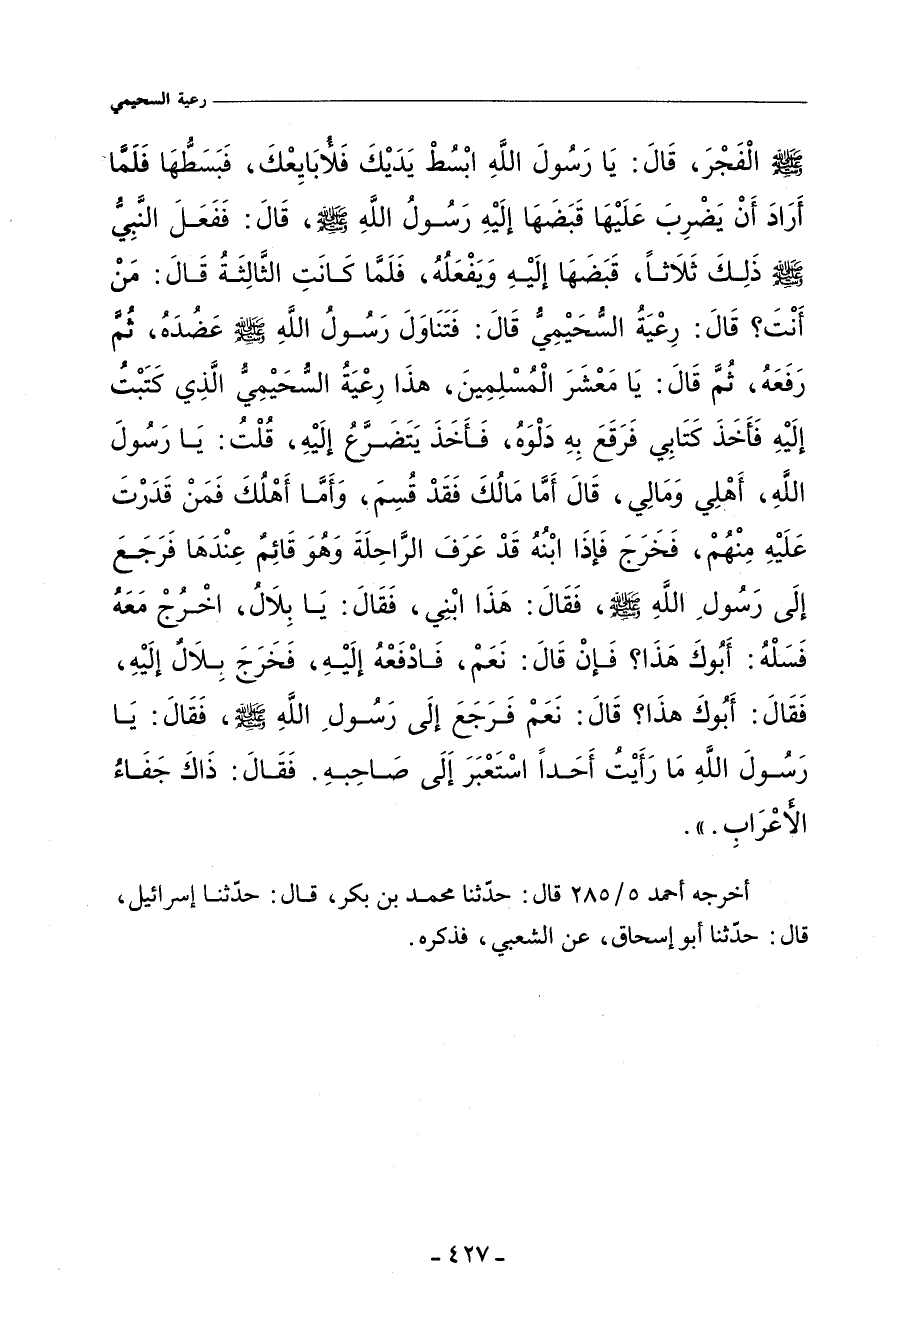 رعية السحيمي
ﷺ الْفَجْرَ، قَالَ: يَا رَسُولَ اللَّهِ ابْسُطْ يَدَيْكَ فَلْأُبَايِعْكَ، فَبَسَطَهَا فَلَمَّا
أَرَادَ أَنْ يَضْرِبَ عَلَيْهَا قَبَضَهَا إِلَيْهِ رَسُولُ اللَّهِ ﷺ، قَالَ: فَفَعَلَ النَّبِيُّ
ﷺ ذَلِكَ ثَلَاثاً، قَبَضَهَا إِلَيْهِ وَيَفْعَلُهُ، فَلَمَّا كَانَتِ الثَّالِثَةُ قَالَ: مَنْ
أَنْتَ؟ قَالَ: رِعْيَةُ السُّحَيْمِيُّ قَالَ: فَتَنَاوَلَ رَسُولُ اللَّهِ ﷺ عَضُدَهُ، ثُمَّ
رَفَعَهُ، ثُمَّ قَالَ: يَا مَعْشَرَ الْمُسْلِمِينَ، هذَا رِعْيَةُ السُّحَيْمِيُّ الَّذِي كَتَبْتُ
إِلَيْهِ فَأَخَذَ كِتَابِي فَرَقَعَ بِهِ دَلْوَهُ، فَأَخَذَ يَتَضَرَّعُ إِلَيْهِ، قُلْتُ: يَا رَسُولَ
اللَّهِ، أَهْلِي وَمَالِي، قَالَ أَمَّا مَالُكَ فَقَدْ قُسِمَ، وَأَمَّا أَهْلُكَ فَمَنْ قَدَرْتَ
عَلَيْهِ مِنْهُمْ، فَخَرَجَ فَإِذَا ابْنُهُ قَدْ عَرَفَ الرَّاحِلَةَ وَهُوَ قَائِمٌ عِنْدَهَا فَرَجَعَ
إِلَى رَسُولِ اللَّهِ ﷺ، فَقَالَ: هَذَا ابْنِي، فَقَالَ: يَا بِلَالُ، اخْرُجْ مَعَهُ
فَسَلْهُ: أَبُوكَ هَذَا؟ فَإِنْ قَالَ: نَعَمْ، فَادْفَعْهُ إِلَيْهِ، فَخَرَجَ بِلَالٌ إِلَيْهِ،
فَقَالَ: أَبُوكَ هذَا؟ قَالَ: نَعَمْ فَرَجَعَ إِلَى رَسُولِ اللَّهِ ﷺ، فَقَالَ: يَا
رَسُولَ اللَّهِ مَا رَأَيْتُ أَحَداً اسْتَعْبَرَ إَلَى صَاحِبِهِ. فَقَالَ: ذَاكَ جَفَاءُ
الأَعْرَابِ.».
أخرجه أحمد ٥/ ٢٨٥ قال: حدّثنا محمد بن بكر، قال: حدّثنا إسرائيل،
قال: حدّثنا أبو إسحاق، عن الشعبي، فذكره.
- ٤٢٧ -